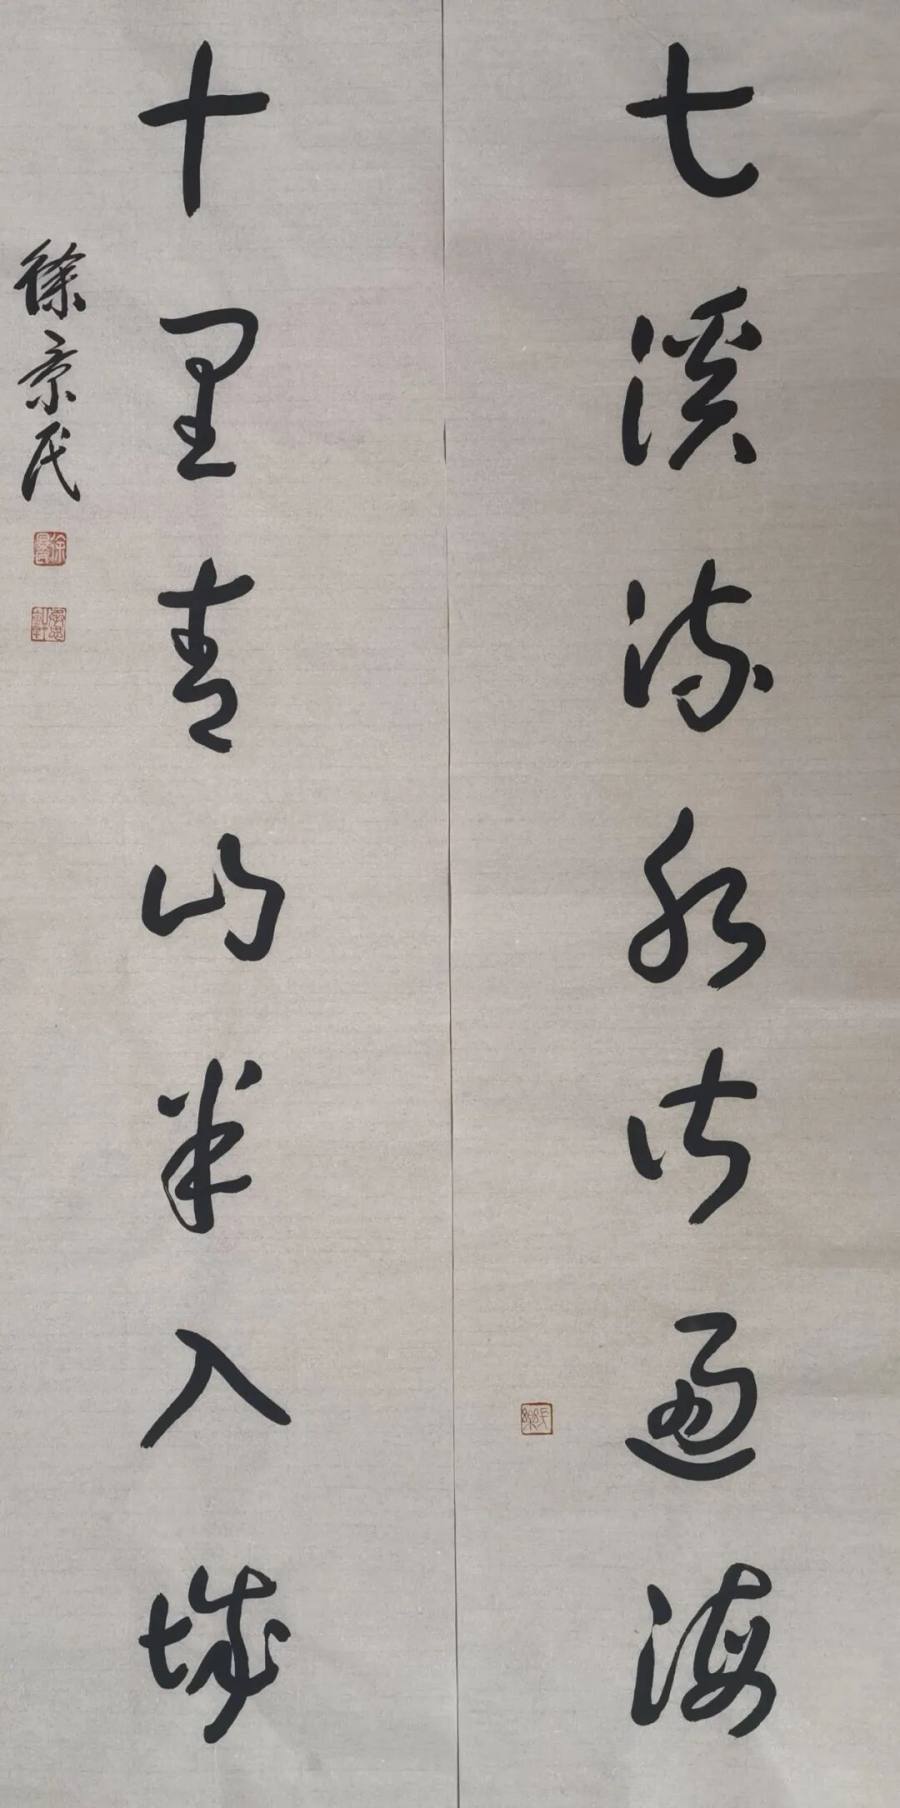 七溪流水皆通海
十里青山半入城
徐景民